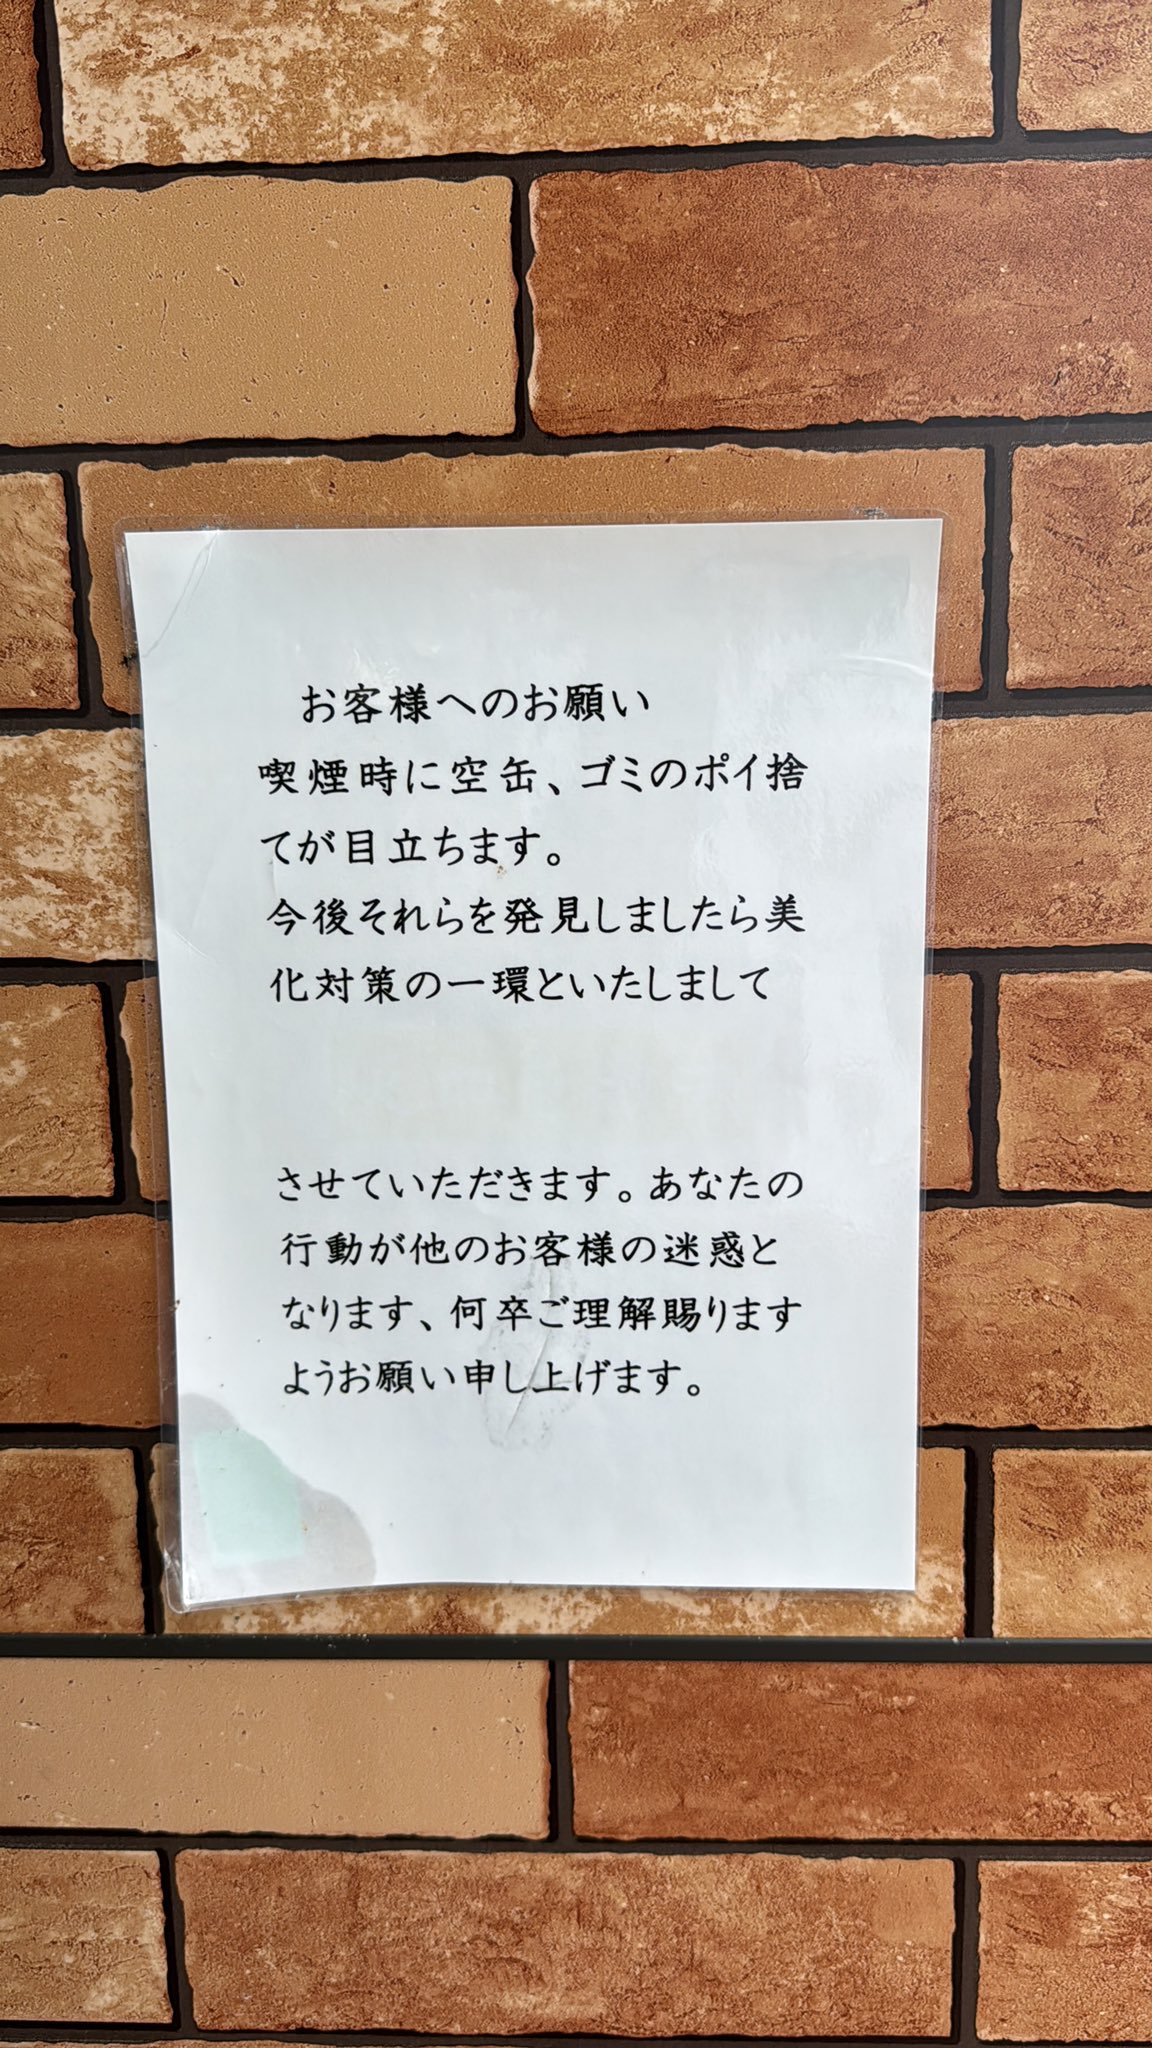 お客様へのお願い
喫煙時に空缶、ゴミのポイ捨
てが目立ちます。
今後それらを発見しましたら美
化対策の一環といたしまして
させていただきます。あなたの
行動が他のお客様の迷惑と
なります、何卒ご理解賜ります
ようお願い申し上げます。